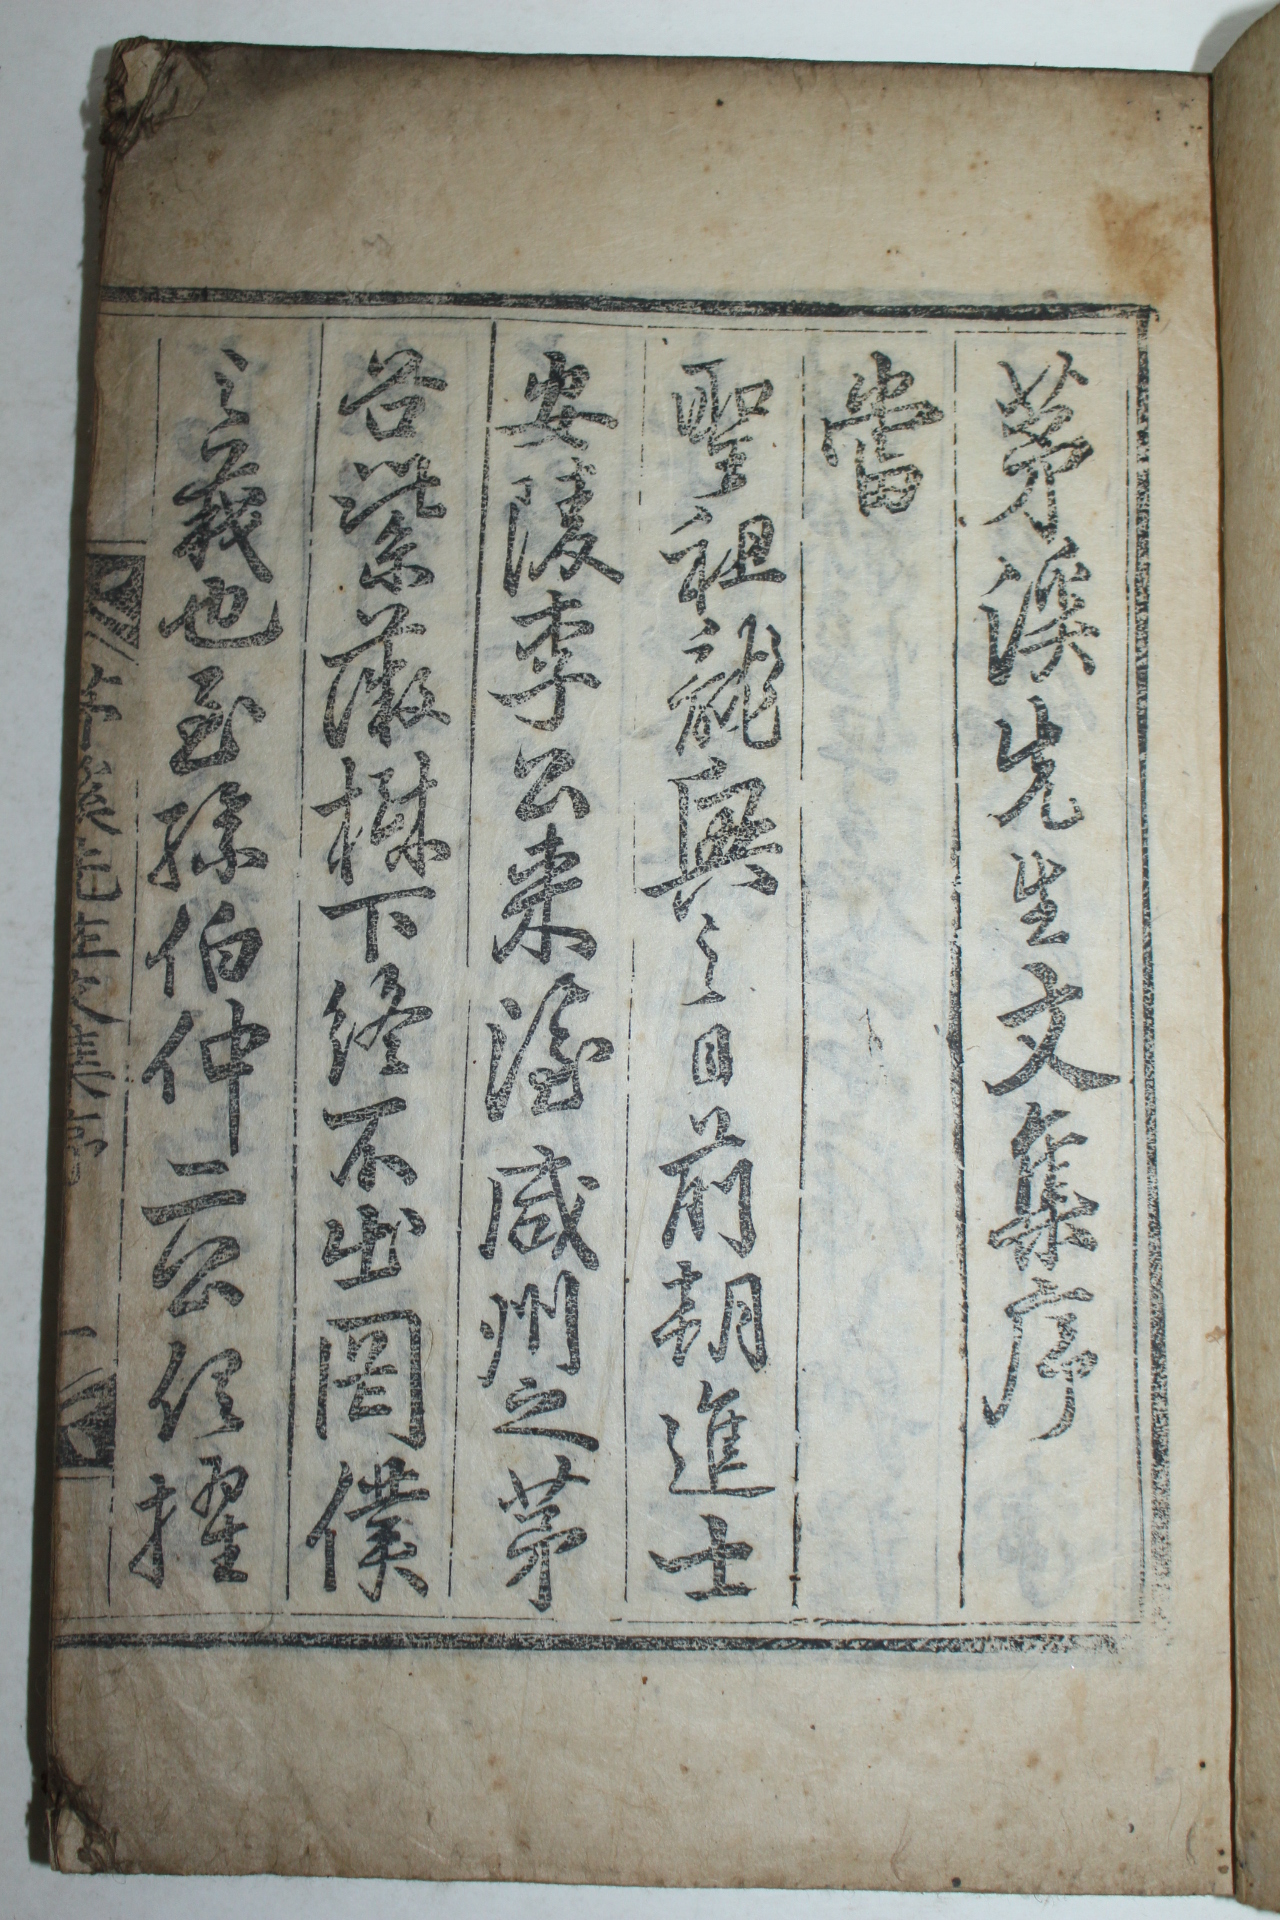 茅溪先生文集序
當
聖祖龍興之日前朝進士
安陵李公来隱咸州之茅
谷紫薇樹下終不出罔僕
之義也至孫伯仲二公俱擢
茅溪先生文集序
一